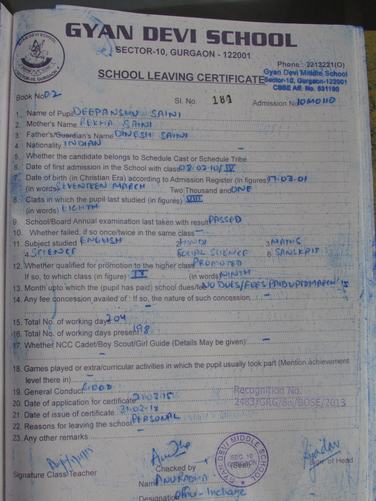 GYAN DEVI SCHOOL
SECTOR-10, GURGAON - 122001
Phone : 2213221(O)
Gyan Devi Middle School
Sector-10, Gurgaon-122001
CBSE Aff. No. 531190
SCHOOL LEAVING CERTIFICATE
Book No. 02
Sl. No. 181
Admission No. 10MO110
1. Name of Pupil DEEPANSHU SAINI
2. Mother's Name REKHA SAINI
3. Father's/Guardian's Name DINESH SAINI
4. Nationality INDIAN
5. Whether the candidate belongs to Schedule Cast or Schedule Tribe
6. Date of first admission in the School with class 02-02-10/IV
7. Date of birth (in Christian Era) according to Admission Register (in figures) 17-03-01
(in words) SEVENTEEN MARCH Two Thousand and ONE
8. Class in which the pupil last studied (in figures) VIII
(in words) EIGHTH
9. School/Board Annual examination last taken with result PASSED
10. Whether failed, if so once/twice in the same class —
11. Subject studied 1. ENGLISH 2. HINDI 3. MATHS
4. SCIENCE SOCIAL SCIENCE 6. SANSKRIT
12. Whether qualified for promotion to the higher class PROMOTED
If so, to which class (in figure) IX (in words) NINTH
13. Month upto which the (pupil has paid) school dues/fee NO DUES/FEES PAID UPTO MARCH'15
14. Any fee concession availed of : If so, the nature of such concession —
15. Total No. of working days 204
16. Total No. of working days present 198
17. Whether NCC Cadet/Boy Scout/Girl Guide (Details may be given) —
18. Games played or extra/curricular activities in which the pupil usually took part (Mention achievement
level there in)
19. General Conduct GOOD
20. Date of application for certificate 21-02-15
21. Date of issue of certificate 21-02-15
22. Reasons for leaving the school PERSONAL
23. Any other remarks
Recognition No.
2483/GRG/8th/BOSE/2013
GYAN DEVI MIDDLE SCHOOL
SEC. 10
Signature Class Teacher
Checked by
ANURADHA
Designation Office - Incharge
of Head